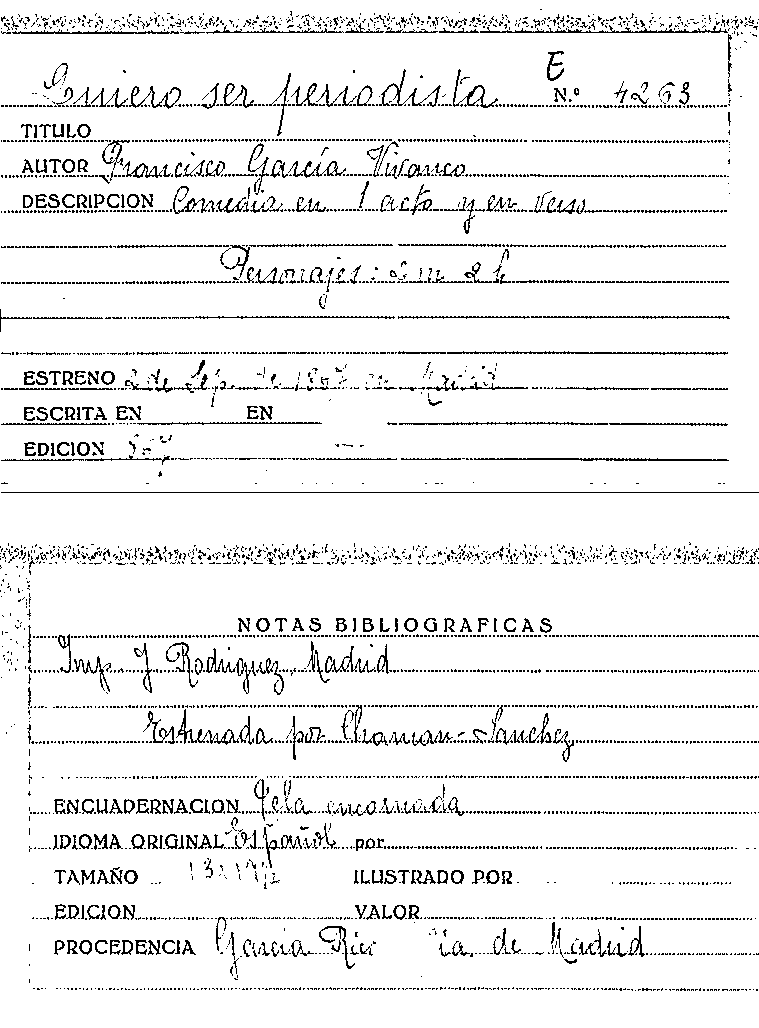 E
Quiero ser periodista N.º 4263
TITULO
AUTOR Francisco García Vivanco
DESCRIPCION Comedia en 1 acto y en verso
Personajes: 2 m 2 h
ESTRENO 2 de Sep. de 1867 en Madrid
ESCRITA EN EN
EDICION 867
NOTAS BIBLIOGRAFICAS
Imp. J Rodriguez, Madrid
Estrenada por Chaman-Sanchez
ENCUADERNACION Tela encarnada
IDIOMA ORIGINAL Español por
TAMAÑO 13x19/2
ILUSTRADO POR
EDICION VALOR
PROCEDENCIA García Rico ia. de Madrid